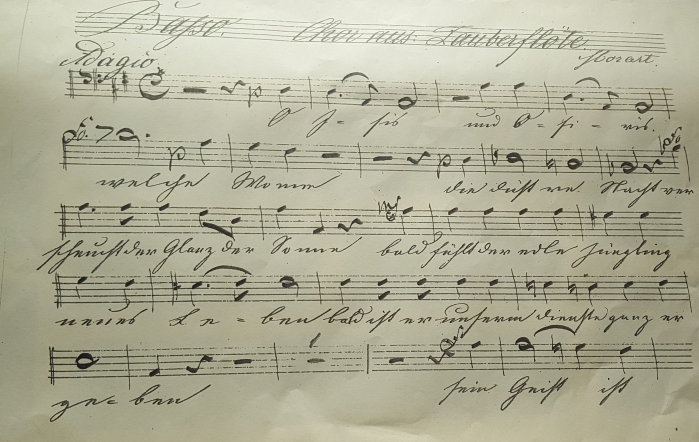 Basso. Chor aus: Zauberflöte.
Adagio Mozart.
O I = sis und O = si = ris.
welche Wonne die düst re. Nacht ver
scheucht der Glanz der Sonne bald fühlt der edle Jüngling
neues Le = ben bald ist er unserm dienste ganz er
ge = ben sein Geist ist